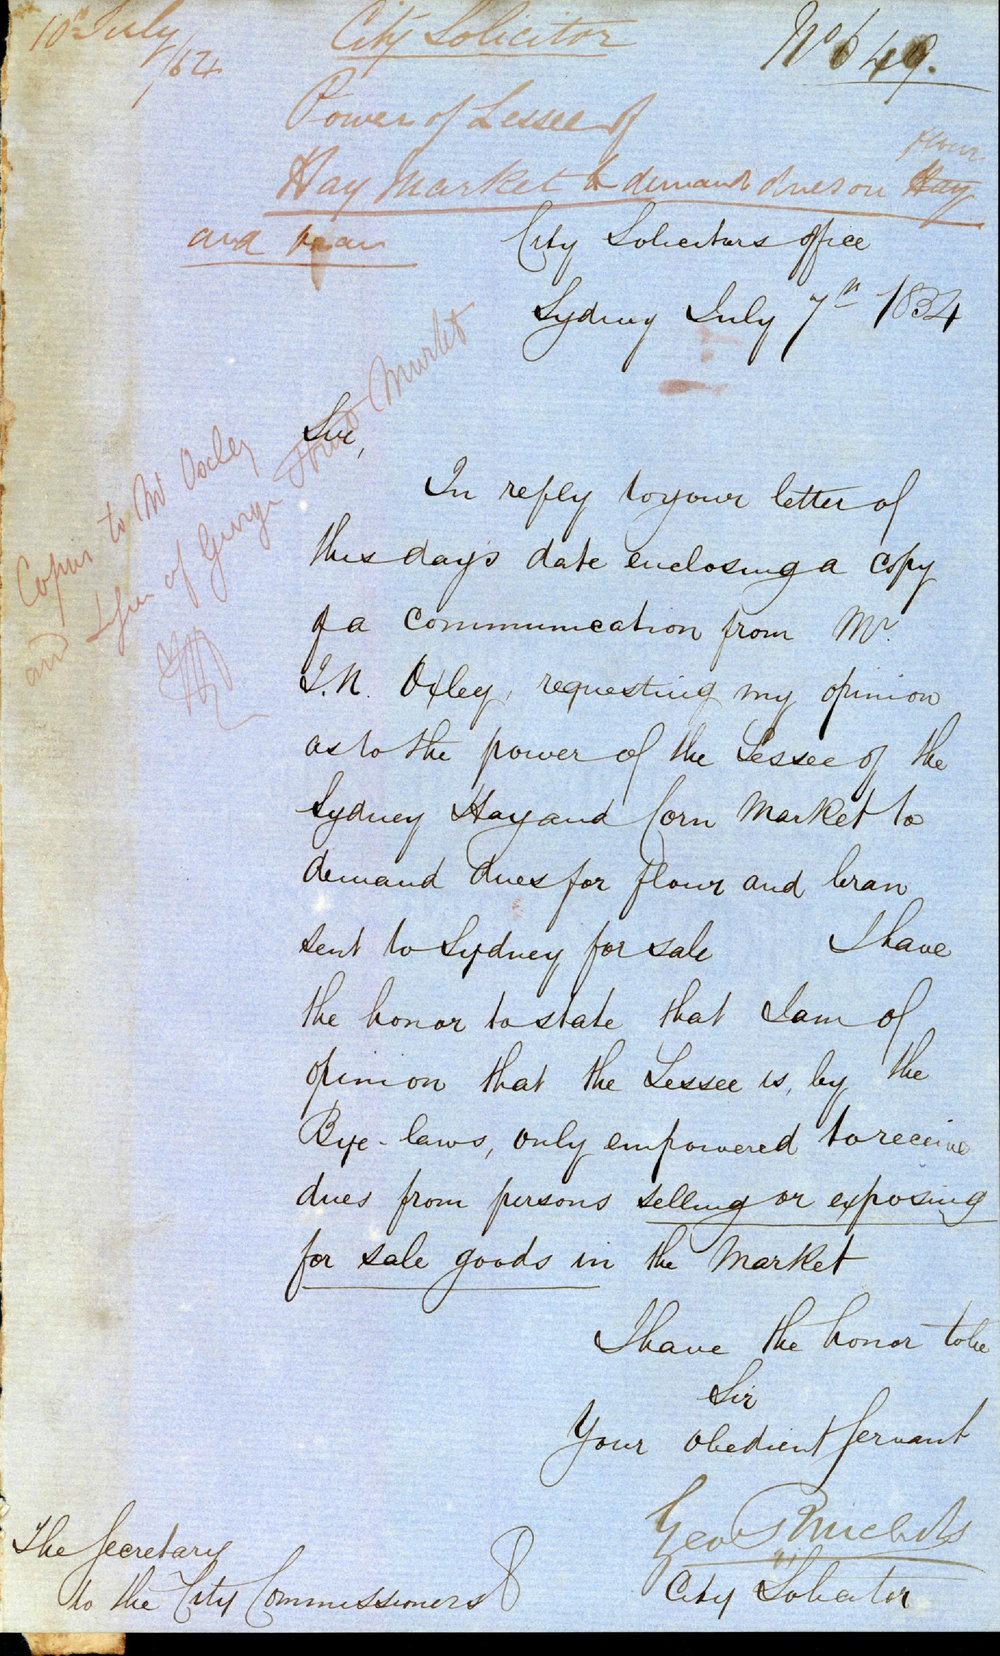 10th July /54
City Solicitor
No 649.
Power of Lessee of
Hay Market to demand dues on Hay flour
and bran
City Solicitors office
Sydney July 7th 1854
Copies to Mr Oxley
and Lessee of George Street Market
Sir,
In reply to your letter of
this day's date enclosing a copy
of a communication from Mr
J.N. Oxley, requesting my opinion
as to the power of the Lessee of the
Sydney Hay and Corn Market to
demand dues for flour and bran
sent to Sydney for sale I have
the honor to state that I am of
opinion that the Lessee is, by the
Bye-laws, only empowered to receive
dues from persons selling or exposing
for sale goods in the Market
I have the honor to be
Sir
Your obedient Servant
Geo Nichols
City Solicitor
The Secretary
to the City Commissioners